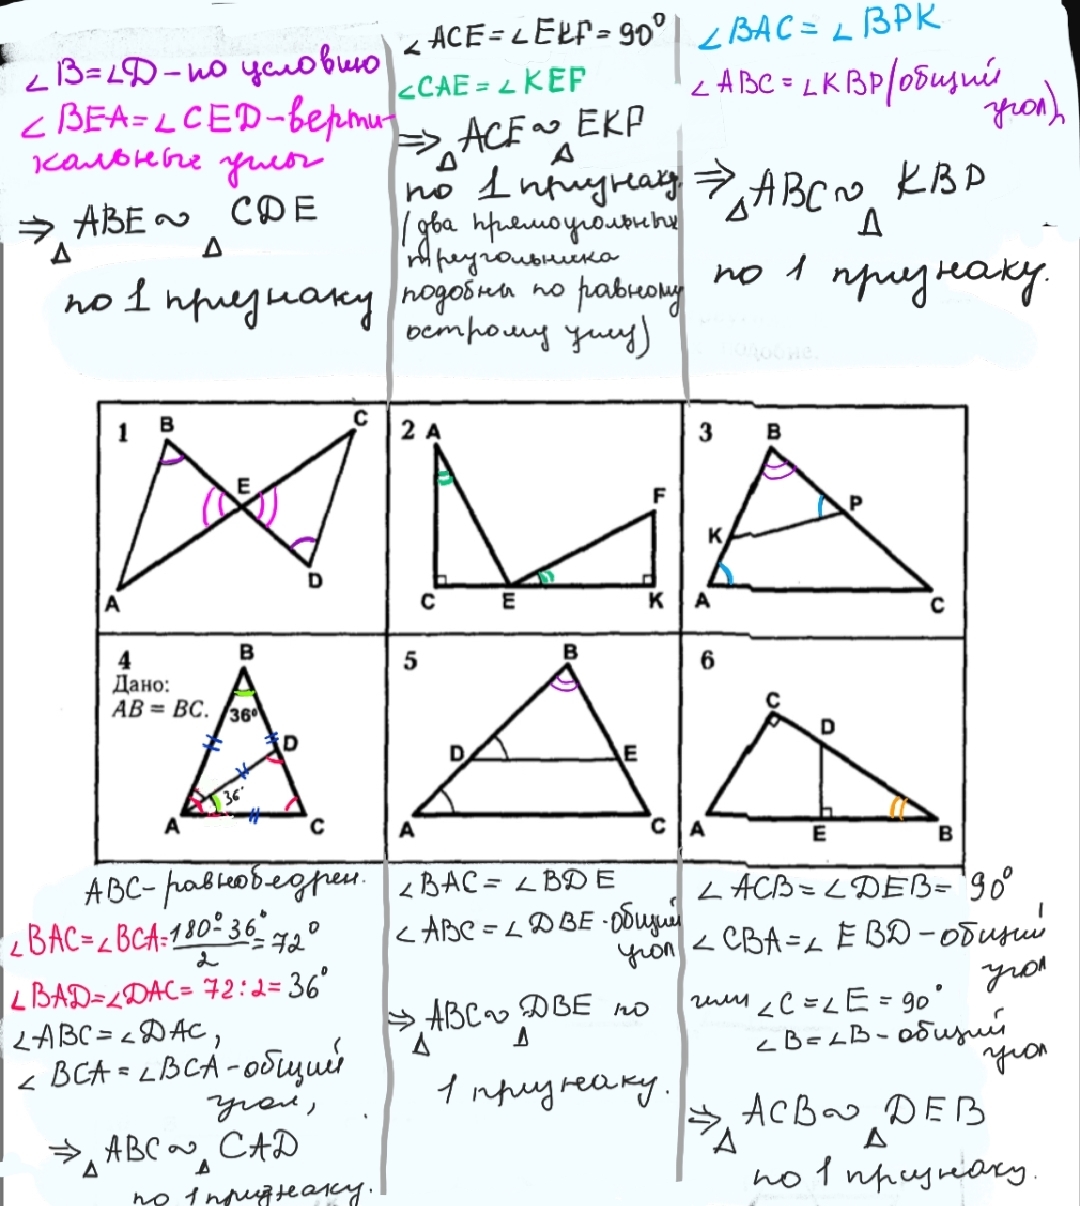 ∠B=∠D-по условию
∠BEA=∠CED-верти-
кальные углы
⇒ △ABE∾ △CDE
по 1 признаку
∠ACE=∠EKF=90°
∠CAE=∠KEF
⇒ △ACE∾ △EKF
по 1 признаку
(два прямоугольных
треугольника
подобны по равному
острому углу)
∠BAC=∠BPK
∠ABC=∠KBP(общий
угол),
⇒ △ABC∾ △KBP
по 1 признаку.
1
B
C
E
D
A
2
A
F
C
E
K
3
B
P
K
A
C
4
Дано:
AB = BC.
B
36°
D
36°
A
C
5
B
D
E
A
C
6
C
D
A
E
B
ABC-равнобедрен.
∠BAC=∠BCA=(180°-36°)/2=72°
∠BAD=∠DAC=72:2=36°
∠ABC=∠DAC,
∠BCA=∠BCA-общий
угол,
⇒ △ABC∾ △CAD
по 1 признаку.
∠BAC=∠BDE
∠ABC=∠DBE-общий
угол
⇒ △ABC∾ △DBE по
1 признаку.
∠ACB=∠DEB=90°
∠CBA=∠EBD-общий
угол
или ∠C=∠E=90°
∠B=∠B-общий
угол
⇒ △ACB∾ △DEB
по 1 признаку.